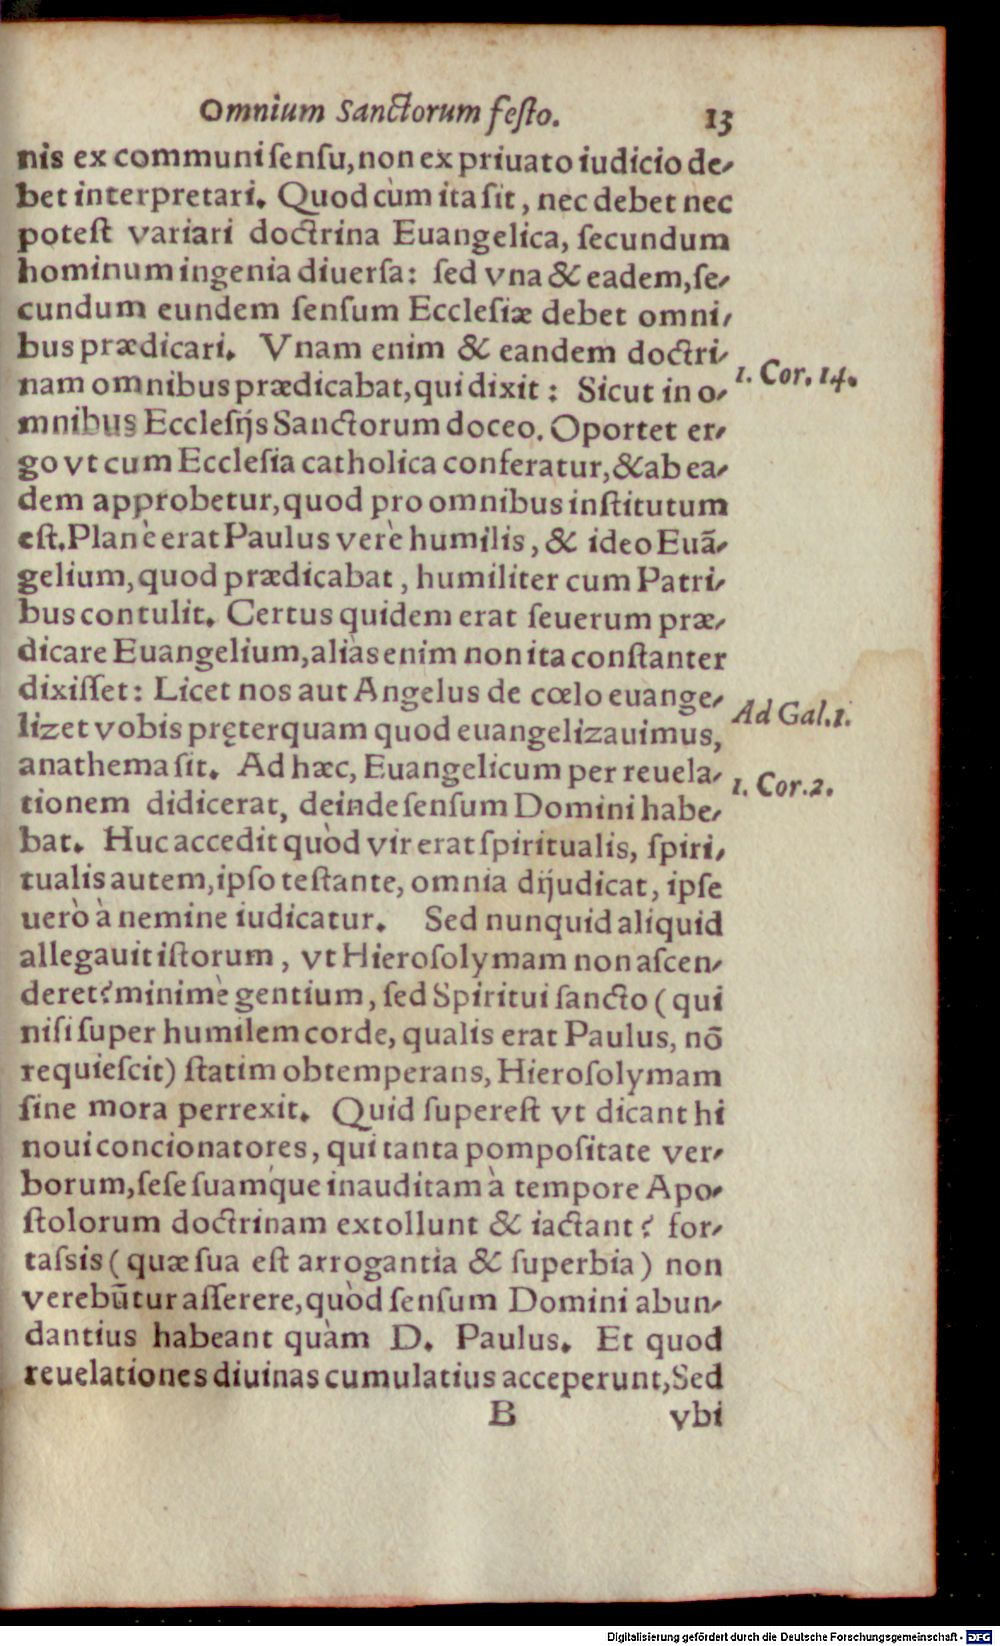 Omnium Sanctorum festo. 13
nis ex communi sensu, non ex priuato iudicio de-
bet interpretari. Quod cùm ita sit, nec debet nec
potest variari doctrina Euangelica, secundum
hominum ingenia diuersa: sed vna & eadem, se-
cundum eundem sensum Ecclesiæ debet omni-
bus prædicari. Vnam enim & eandem doctri-
nam omnibus prædicabat, qui dixit: Sicut in o-
1. Cor. 14.
mnibus Ecclesijs Sanctorum doceo. Oportet er-
go vt cum Ecclesia catholica conferatur, & ab ea-
dem approbetur, quod pro omnibus institutum
est. Planè erat Paulus verè humilis, & ideo Euã-
gelium, quod prædicabat, humiliter cum Patri-
bus contulit. Certus quidem erat seuerum præ-
dicare Euangelium, aliàs enim non ita constanter
dixisset: Licet nos aut Angelus de cœlo euange-
Ad Gal. 1.
lizet vobis pręterquam quod euangelizauimus,
anathema sit. Ad hæc, Euangelicum per reuela-
1. Cor. 2.
tionem didicerat, deinde sensum Domini habe-
bat. Huc accedit quòd vir erat spiritualis, spiri-
tualis autem, ipso testante, omnia dijudicat, ipse
uerò à nemine iudicatur. Sed nunquid aliquid
allegauit istorum, vt Hierosolymam non ascen-
deret? minimè gentium, sed Spiritui sancto (qui
nisi super humilem corde, qualis erat Paulus, nõ
requiescit) statim obtemperans, Hierosolymam
sine mora perrexit. Quid superest vt dicant hi
noui concionatores, qui tanta pompositate ver-
borum, sese suamq́ue inauditam à tempore Apo-
stolorum doctrinam extollunt & iactant? for-
tassis (quæ sua est arrogantia & superbia) non
verebũtur asserere, quòd sensum Domini abun-
dantius habeant quàm D. Paulus. Et quod
reuelationes diuinas cumulatius acceperunt, Sed
B vbi
Digitalisierung gefördert durch die Deutsche Forschungsgemeinschaft - DFG